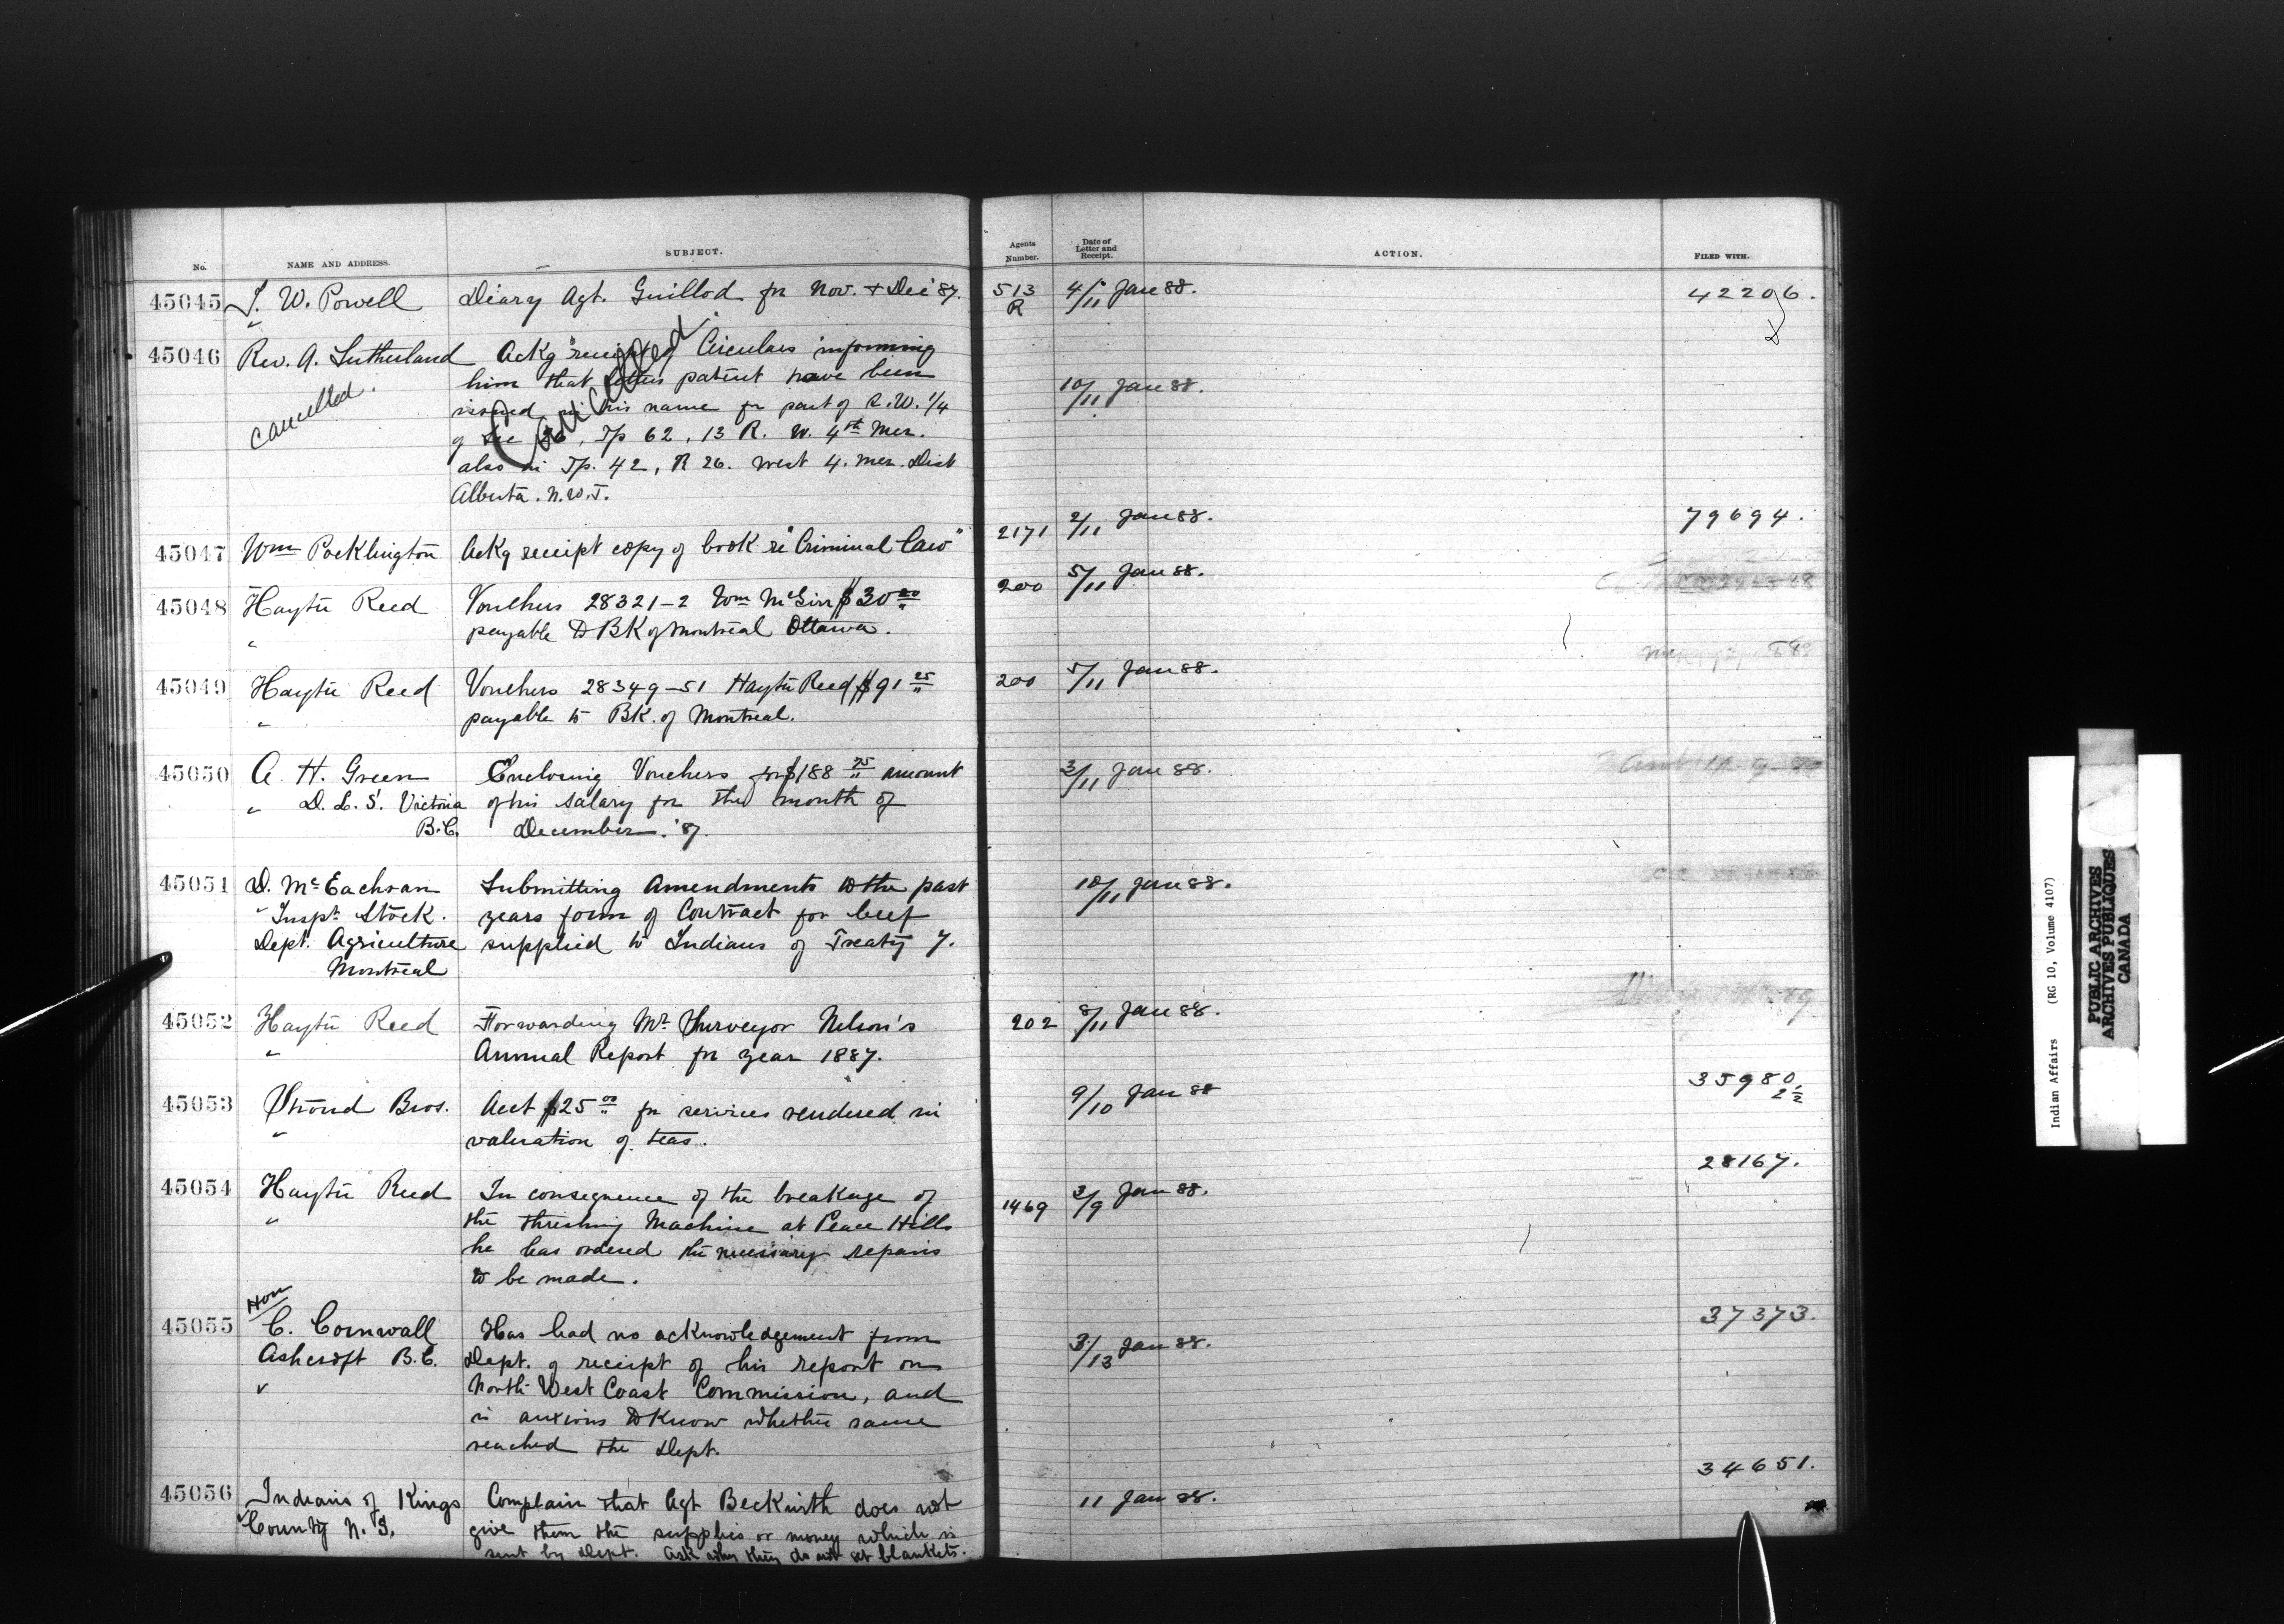 No. NAME AND ADDRESS. SUBJECT. Agents Number. Date of Letter and Receipt. ACTION. FILED WITH.
45045 I. W. Powell Diary Agt. Guillod for Nov. + Dec '87. 513 R 4/11 Jan 88. 42206.
45046 Rev. A. Sutherland Ackg receipt of Circulars informing
cancelled. him that letters patent have been 10/11 Jan 88.
Cancelled.
issued in his name for part of S.W. 1/4
of Sec 36, Tp 62, 13 R. W. 4th Mer.
also in Tp. 42, R 26. West 4. Mer. Dist
Alberta. N.W.T.
45047 Wm Pocklington Ackg receipt copy of book re "Criminal Law" 2171 2/11 Jan 88. 79694.
45048 Hayter Reed Vouchers 28321-2 Wm McGirr $30.00 200 5/11 Jan 88.
" payable to BK of Montreal Ottawa.
45049 Hayter Reed Vouchers 28349-51 Hayter Reed $91.25 200 5/11 Jan 88.
" payable to BK. of Montreal.
45050 A. H. Green Enclosing Vouchers for $188.75 amount 3/11 Jan 88.
" D. L. S. Victoria of his salary for the month of
B.C. December. '87.
45051 D. McEachran Submitting Amendments to the past 10/11 Jan 88.
" Inspr Stock. years form of Contract for beef
Dept. Agriculture supplied to Indians of Treaty 7.
Montreal
45052 Hayter Reed Forwarding Mr Surveyor Nelson's 202 8/11 Jan 88.
" Annual Report for year 1887.
45053 Stroud Bros. Acct $25.00 for services rendered in 9/10 Jan 88 35980.
" valuation of teas.
45054 Hayter Reed In consequence of the breakage of 1469 3/9 Jan 88. 28167.
" the threshing Machine at Peace Hills
he has ordered the necessary repairs
to be made.
Hon
45055 C. Cornwall Has had no acknowledgement from 3/13 Jan 88. 37373.
Ashcroft B.C. Dept. of receipt of his report on
North West Coast Commission, and
is anxious to know whether same
reached the Dept.
45056 Indians of Kings Complain that Agt Beckwith does not 11 Jan 88. 34651.
County N. S. give them the supplies or money which is
sent by Dept. Ask why they do not get blankets.
Indian Affairs (RG 10, Volume 4107)
PUBLIC ARCHIVES
ARCHIVES PUBLIQUES
CANADA